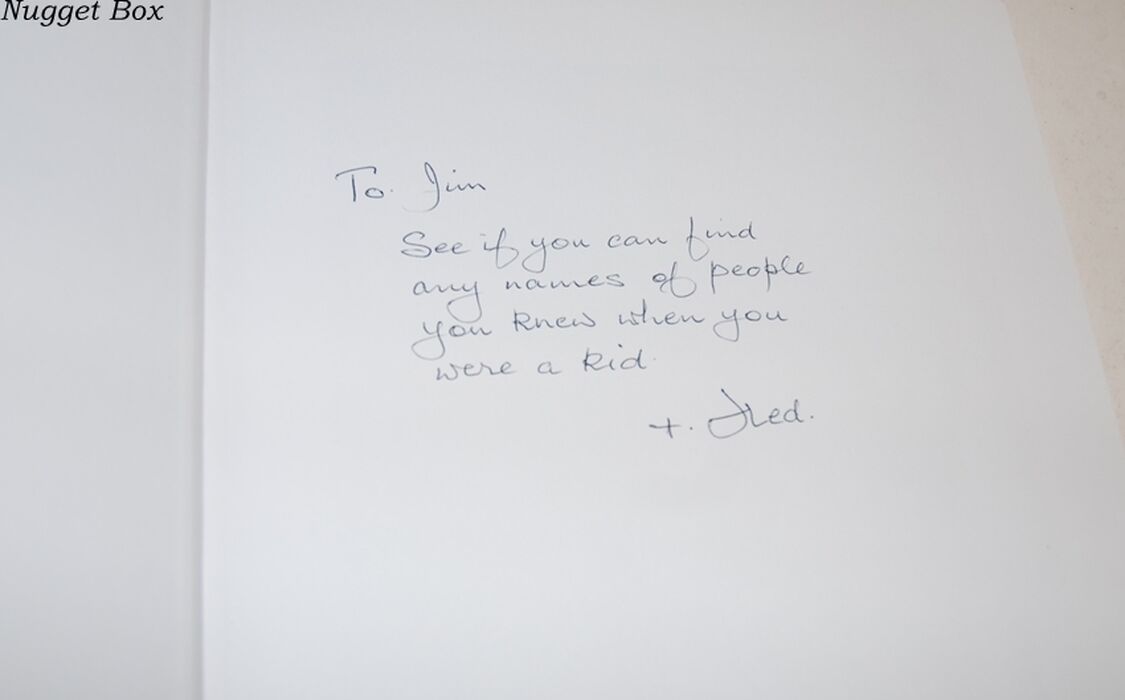 Nugget Box
To. Jim
See if you can find
any names of people
you knew when you
were a kid.
+. Fred.